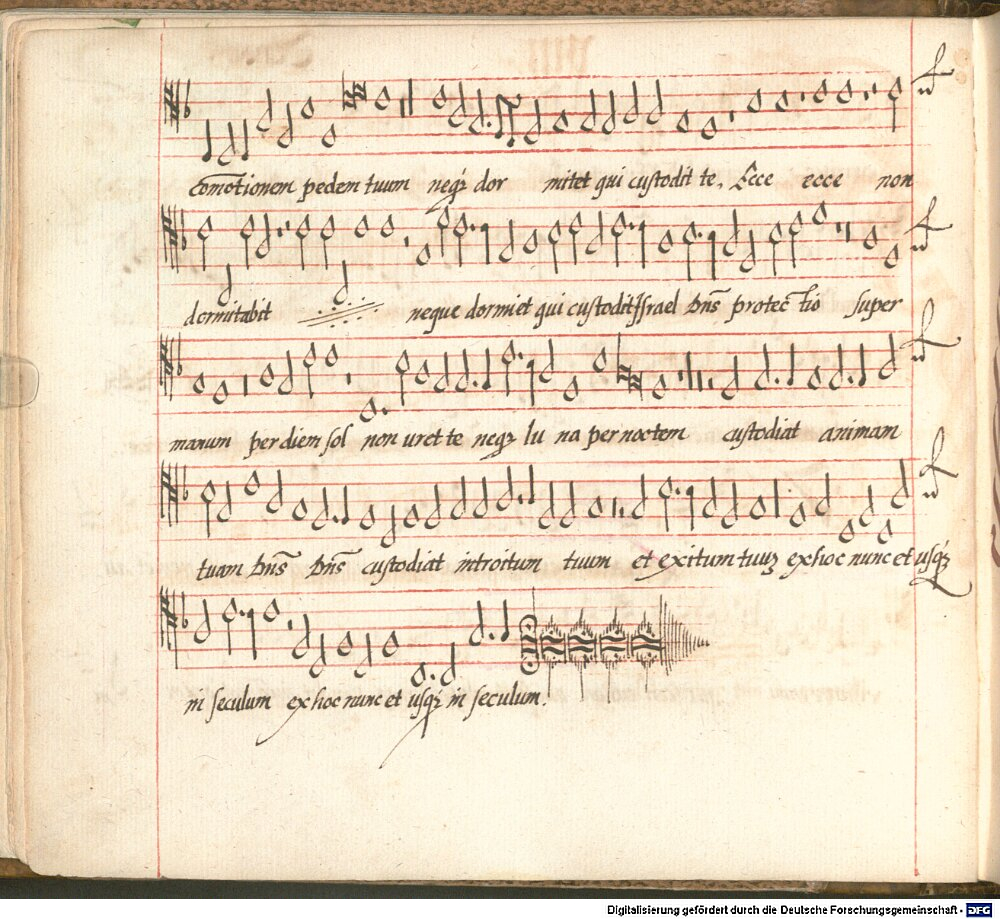 comotionem pedem tuum neqȝ dor mitet qui custodit te, Ecce ecce non
dormitabit neque dormiet qui custodit Israel Dn̄s protectio super
manum per diem sol non uret te neqȝ lu na per noctem custodiat animam
tuam Dn̄s Dn̄s custodiat introitum tuum et exitum tuuȝ ex hoc nunc et usqȝ
in seculum ex hoc nunc et usqȝ in seculum.
Digitalisierung gefördert durch die Deutsche Forschungsgemeinschaft - DFG